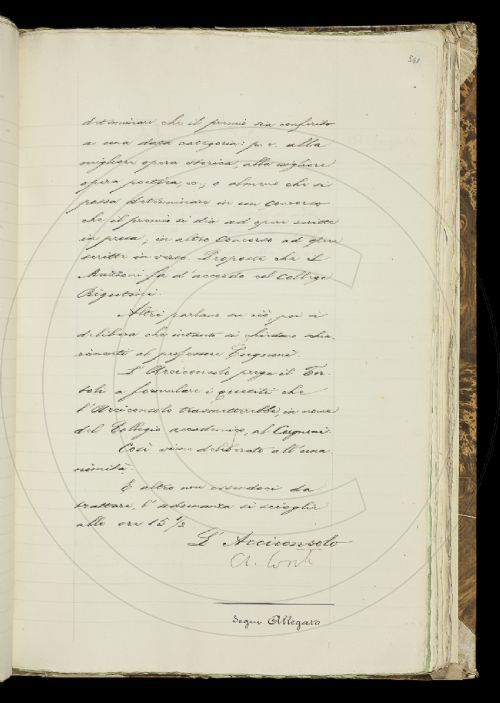 341
determinare che il premio sia conferito
a una data categoria: p. e. alla
migliore opera storica, alla migliore
opera poetica, ec; o almeno che si
possa determinare in un concorso
che il premio si dia ad opere scritte
in prosa, in altro concorso ad opere
scritte in verso. Propone che il
Mazzoni fa d'accordo col collega
Rigutini.
Altri parlano su ciò, poi si
delibera che intanto si chiedano schia-
rimenti al professore
L'Arciconsolo prega il
a formulare i quesiti che
l'Arciconsolo trasmetterebbe, in nome
del Collegio accademico, al
Così viene deliberato all'una-
nimità.
E altro non essendoci da
trattare, l'adunanza si scioglie
alle ore 15 1/2
L'Arciconsolo
A. Conti
Segue Allegato